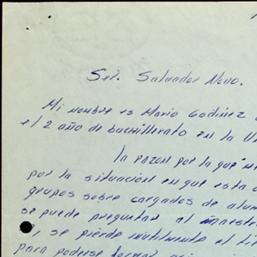 Sr. Salvador Novo.
Mi nombre es Mario Godinez
el 2 año de bachillerato en la
la razon por la que
por la situación en que esta
grupos sobre cargados de
se puede preguntar al maestro
se pierde inutilmente el
para poderse formar